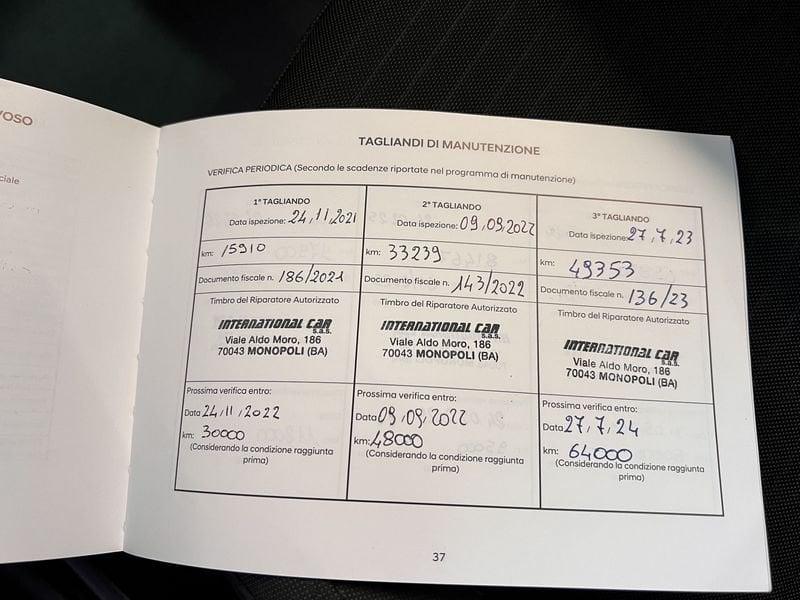 VOSO
ciale
TAGLIANDI DI MANUTENZIONE
VERIFICA PERIODICA (Secondo le scadenze riportate nel programma di manutenzione)
1° TAGLIANDO
Data ispezione: 24,11,2021
km: 15910
Documento fiscale n. 186/2021
Timbro del Riparatore Autorizzato
INTERNATIONAL CAR
s.a.s.
Viale Aldo Moro, 186
70043 MONOPOLI (BA)
Prossima verifica entro:
Data 24,11,2022
km: 30000
(Considerando la condizione raggiunta
prima)
2° TAGLIANDO
Data ispezione: 09,09,2022
km: 33239
Documento fiscale n. 143/2022
Timbro del Riparatore Autorizzato
INTERNATIONAL CAR
s.a.s.
Viale Aldo Moro, 186
70043 MONOPOLI (BA)
Prossima verifica entro:
Data 09,09,2022
km: 48000
(Considerando la condizione raggiunta
prima)
3° TAGLIANDO
Data ispezione: 27,7,23
km: 49353
Documento fiscale n. 136/23
Timbro del Riparatore Autorizzato
INTERNATIONAL CAR
s.a.s.
Viale Aldo Moro, 186
70043 MONOPOLI (BA)
Prossima verifica entro:
Data 27,7,24
km: 64000
(Considerando la condizione raggiunta
prima)
37